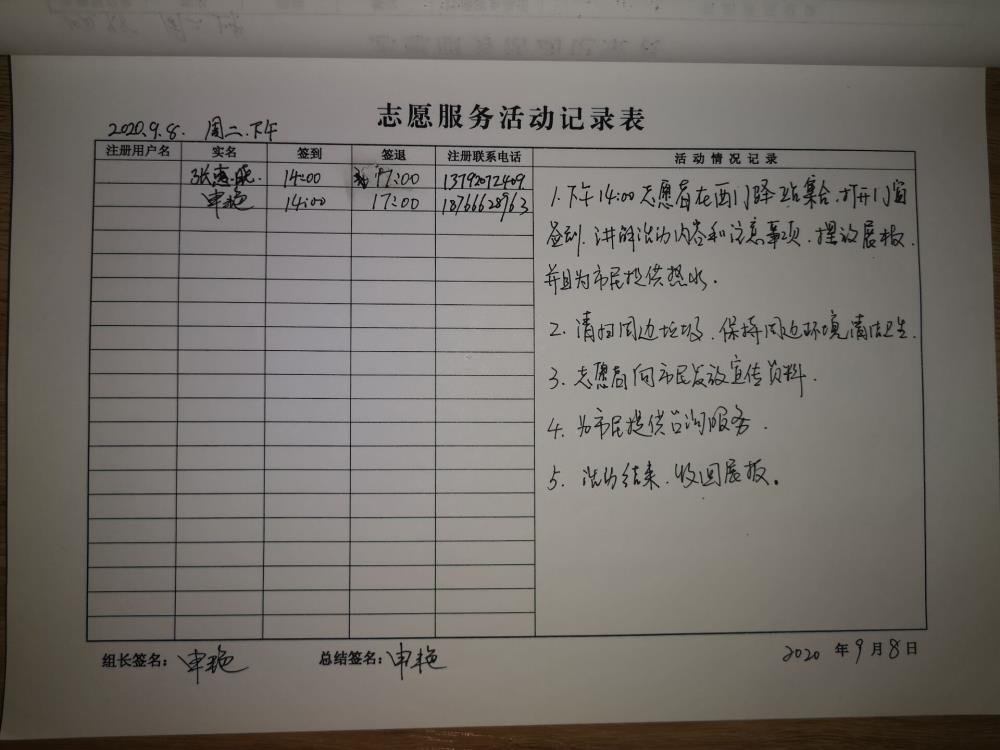 志愿服务活动记录表
2020.9.8. 周二.下午
注册用户名 实名 签到 签退 注册联系电话 活动情况记录
张惠 14:00 17:00 13792072409
申艳 14:00 17:00 18766628963
1.下午14:00志愿者在西门驿站集合.打开门窗
签到.讲解活动内容和注意事项.摆放展板.
并且为市民提供热水.
2.清扫周边垃圾.保持周边环境清洁卫生.
3.志愿者向市民发放宣传资料.
4.为市民提供咨询服务.
5.活动结束.收回展板。
组长签名：申艳 总结签名：申艳 2020 年 9 月 8 日